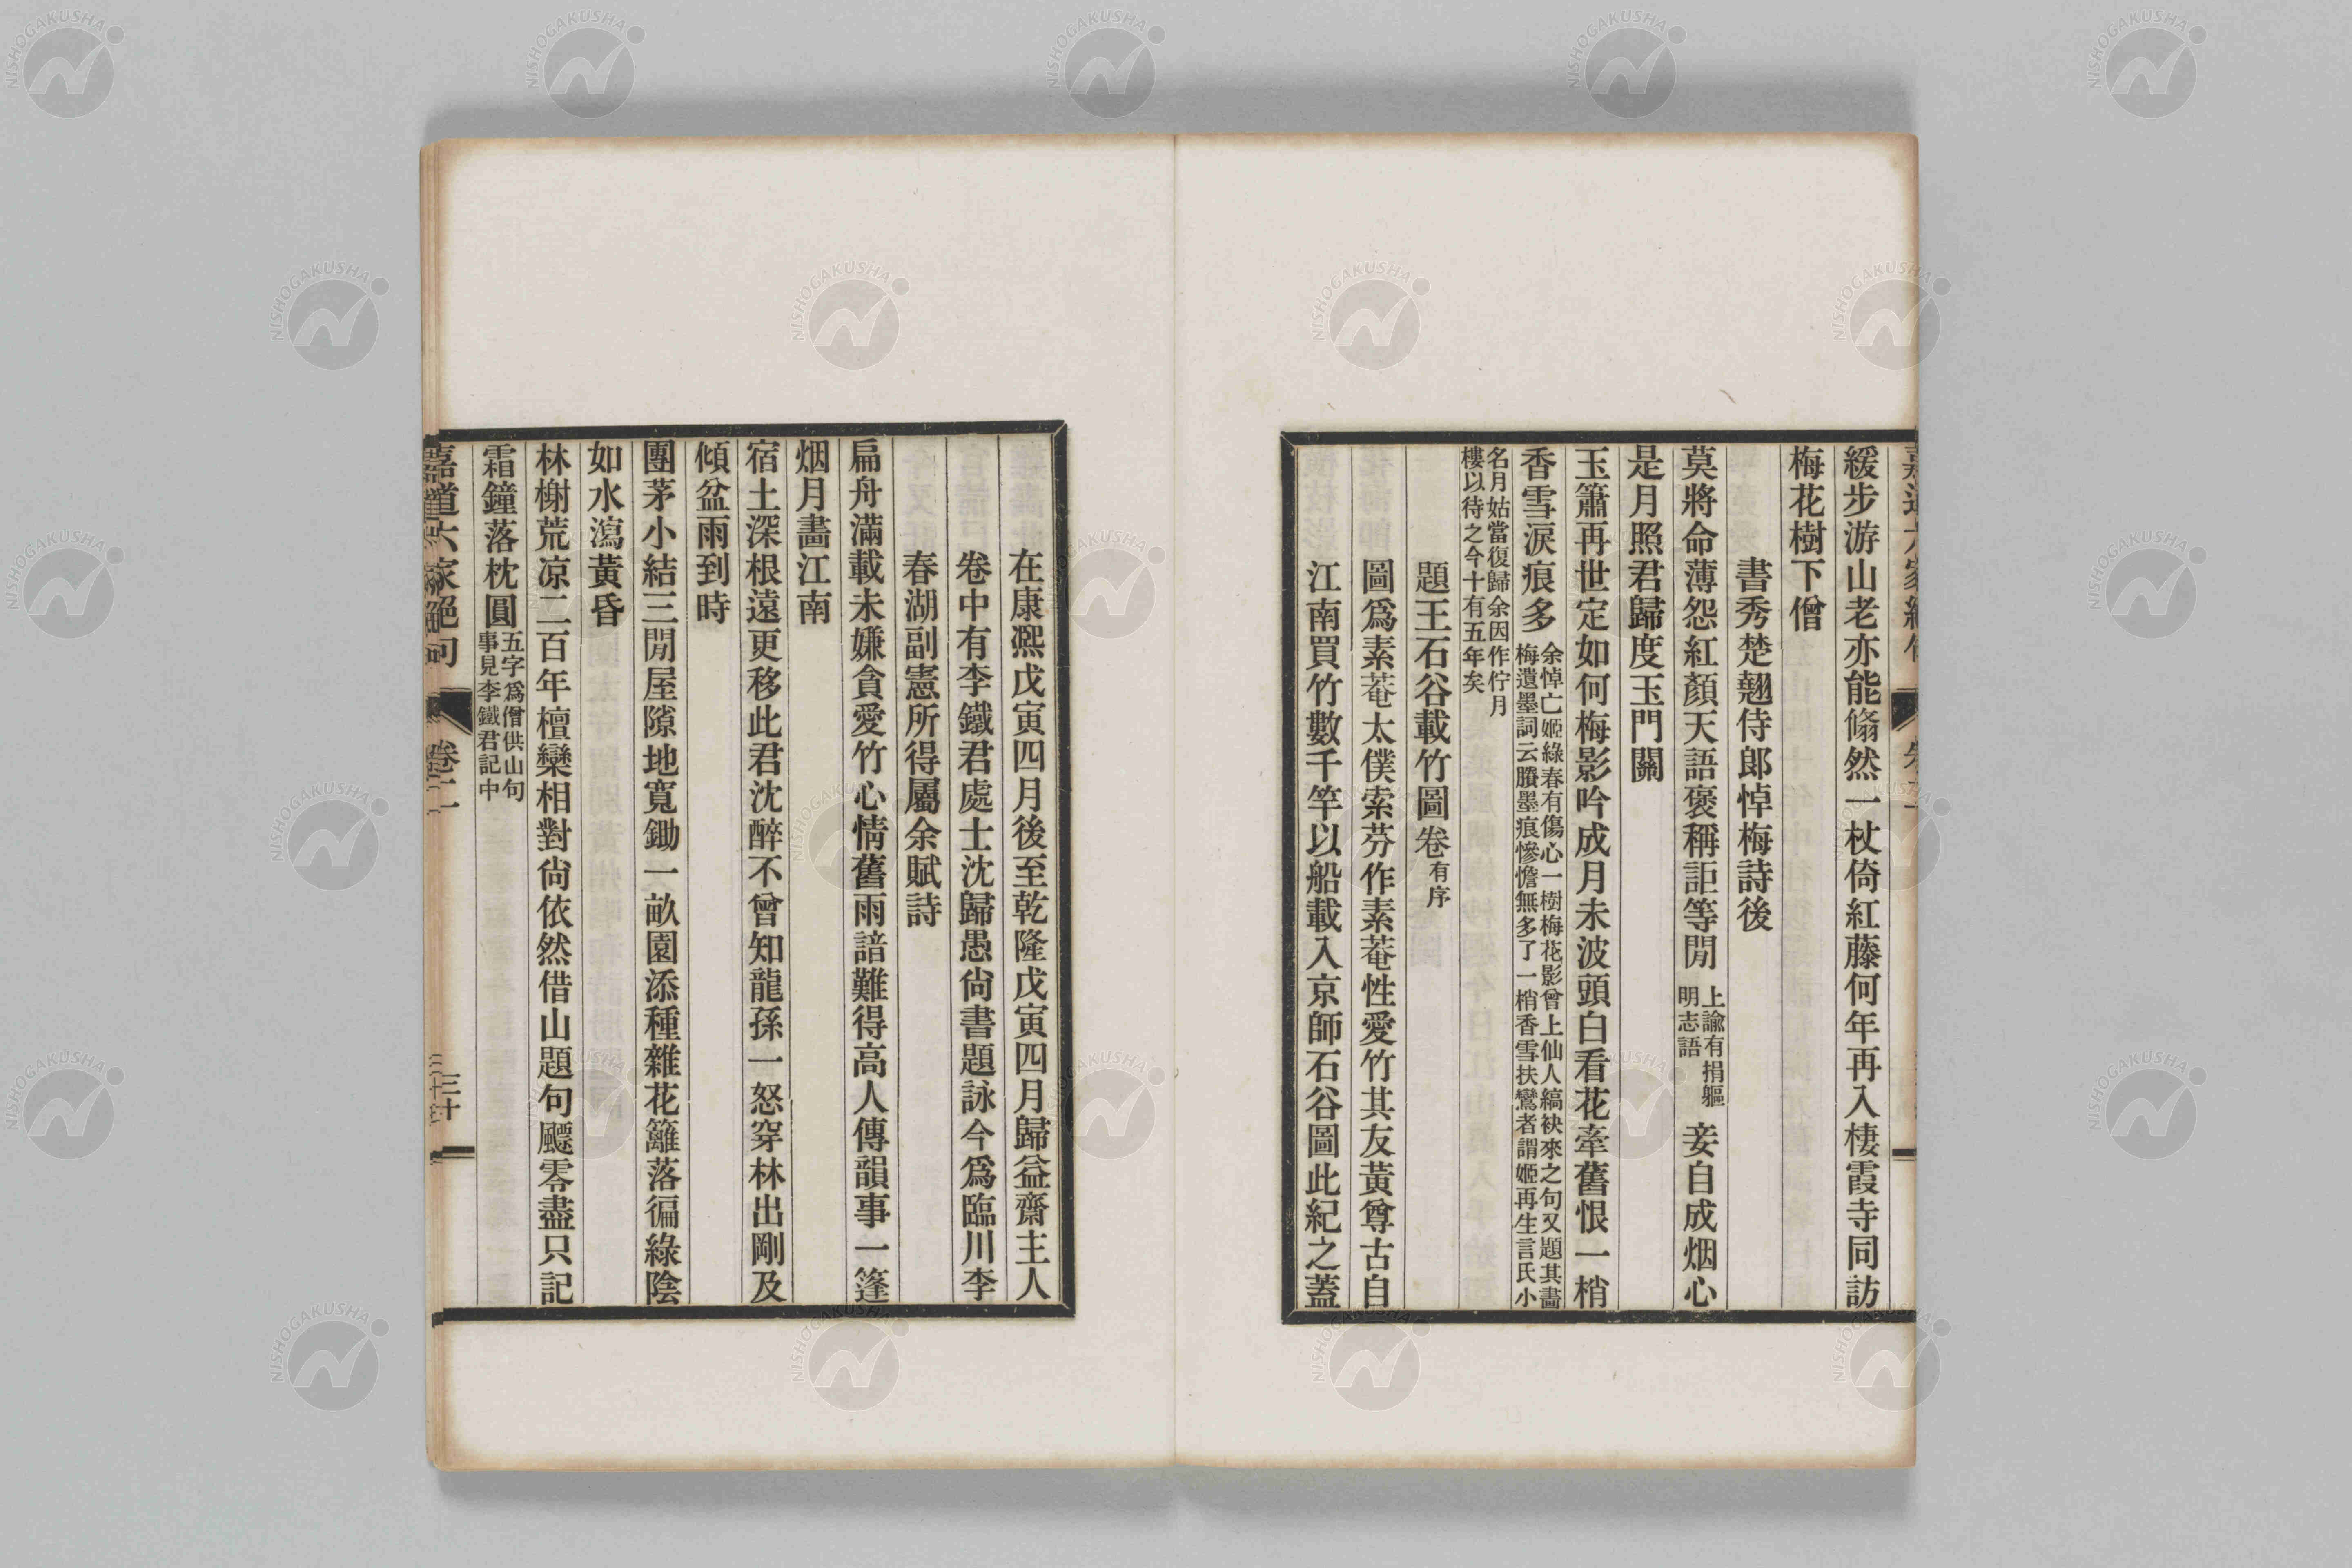 緩步游山老亦能翛然一杖倚紅藤何年再入棲霞寺同訪
梅花樹下僧
書秀楚翹侍郞悼梅詩後
莫將命薄怨紅顏天語褒稱詎等閒上諭有捐軀明志語妾自成烟心
是月照君歸度玉門關
玉簫再世定如何梅影吟成月未波頭白看花牽舊恨一梢
香雪淚痕多余悼亡姬綠春有傷心一樹梅花影曾上仙人縞袂來之句又題其畫梅遺墨詞云賸墨痕慘憺無多了一梢香雪扶鸞者謂姬再生言氏小
名月姑當復歸余因作佇月樓以待之今十有五年矣
題王石谷載竹圖卷有序
圖爲素菴太僕索芬作素菴性愛竹其友黃尊古自
江南買竹數千竿以船載入京師石谷圖此紀之蓋
在康熙戊寅四月後至乾隆戊寅四月歸益齋主人
卷中有李鐵君處士沈歸愚尙書題詠今爲臨川李
春湖副憲所得屬余賦詩
扁舟滿載未嫌貪愛竹心情舊雨諳難得高人傳韻事一篷
烟月畫江南
宿土深根遠更移此君沈醉不曾知龍孫一怒穿林出剛及
傾盆雨到時
團茅小結三閒屋隙地寬鋤一畝園添種雜花籬落徧綠陰
如水瀉黃昏
林榭荒凉二百年檀欒相對尙依然借山題句飃零盡只記
霜鐘落枕圓五字爲僧供山句事見李鐵君記中
嘉道六家絕句
卷二
三十
NISHOGAKUSHA